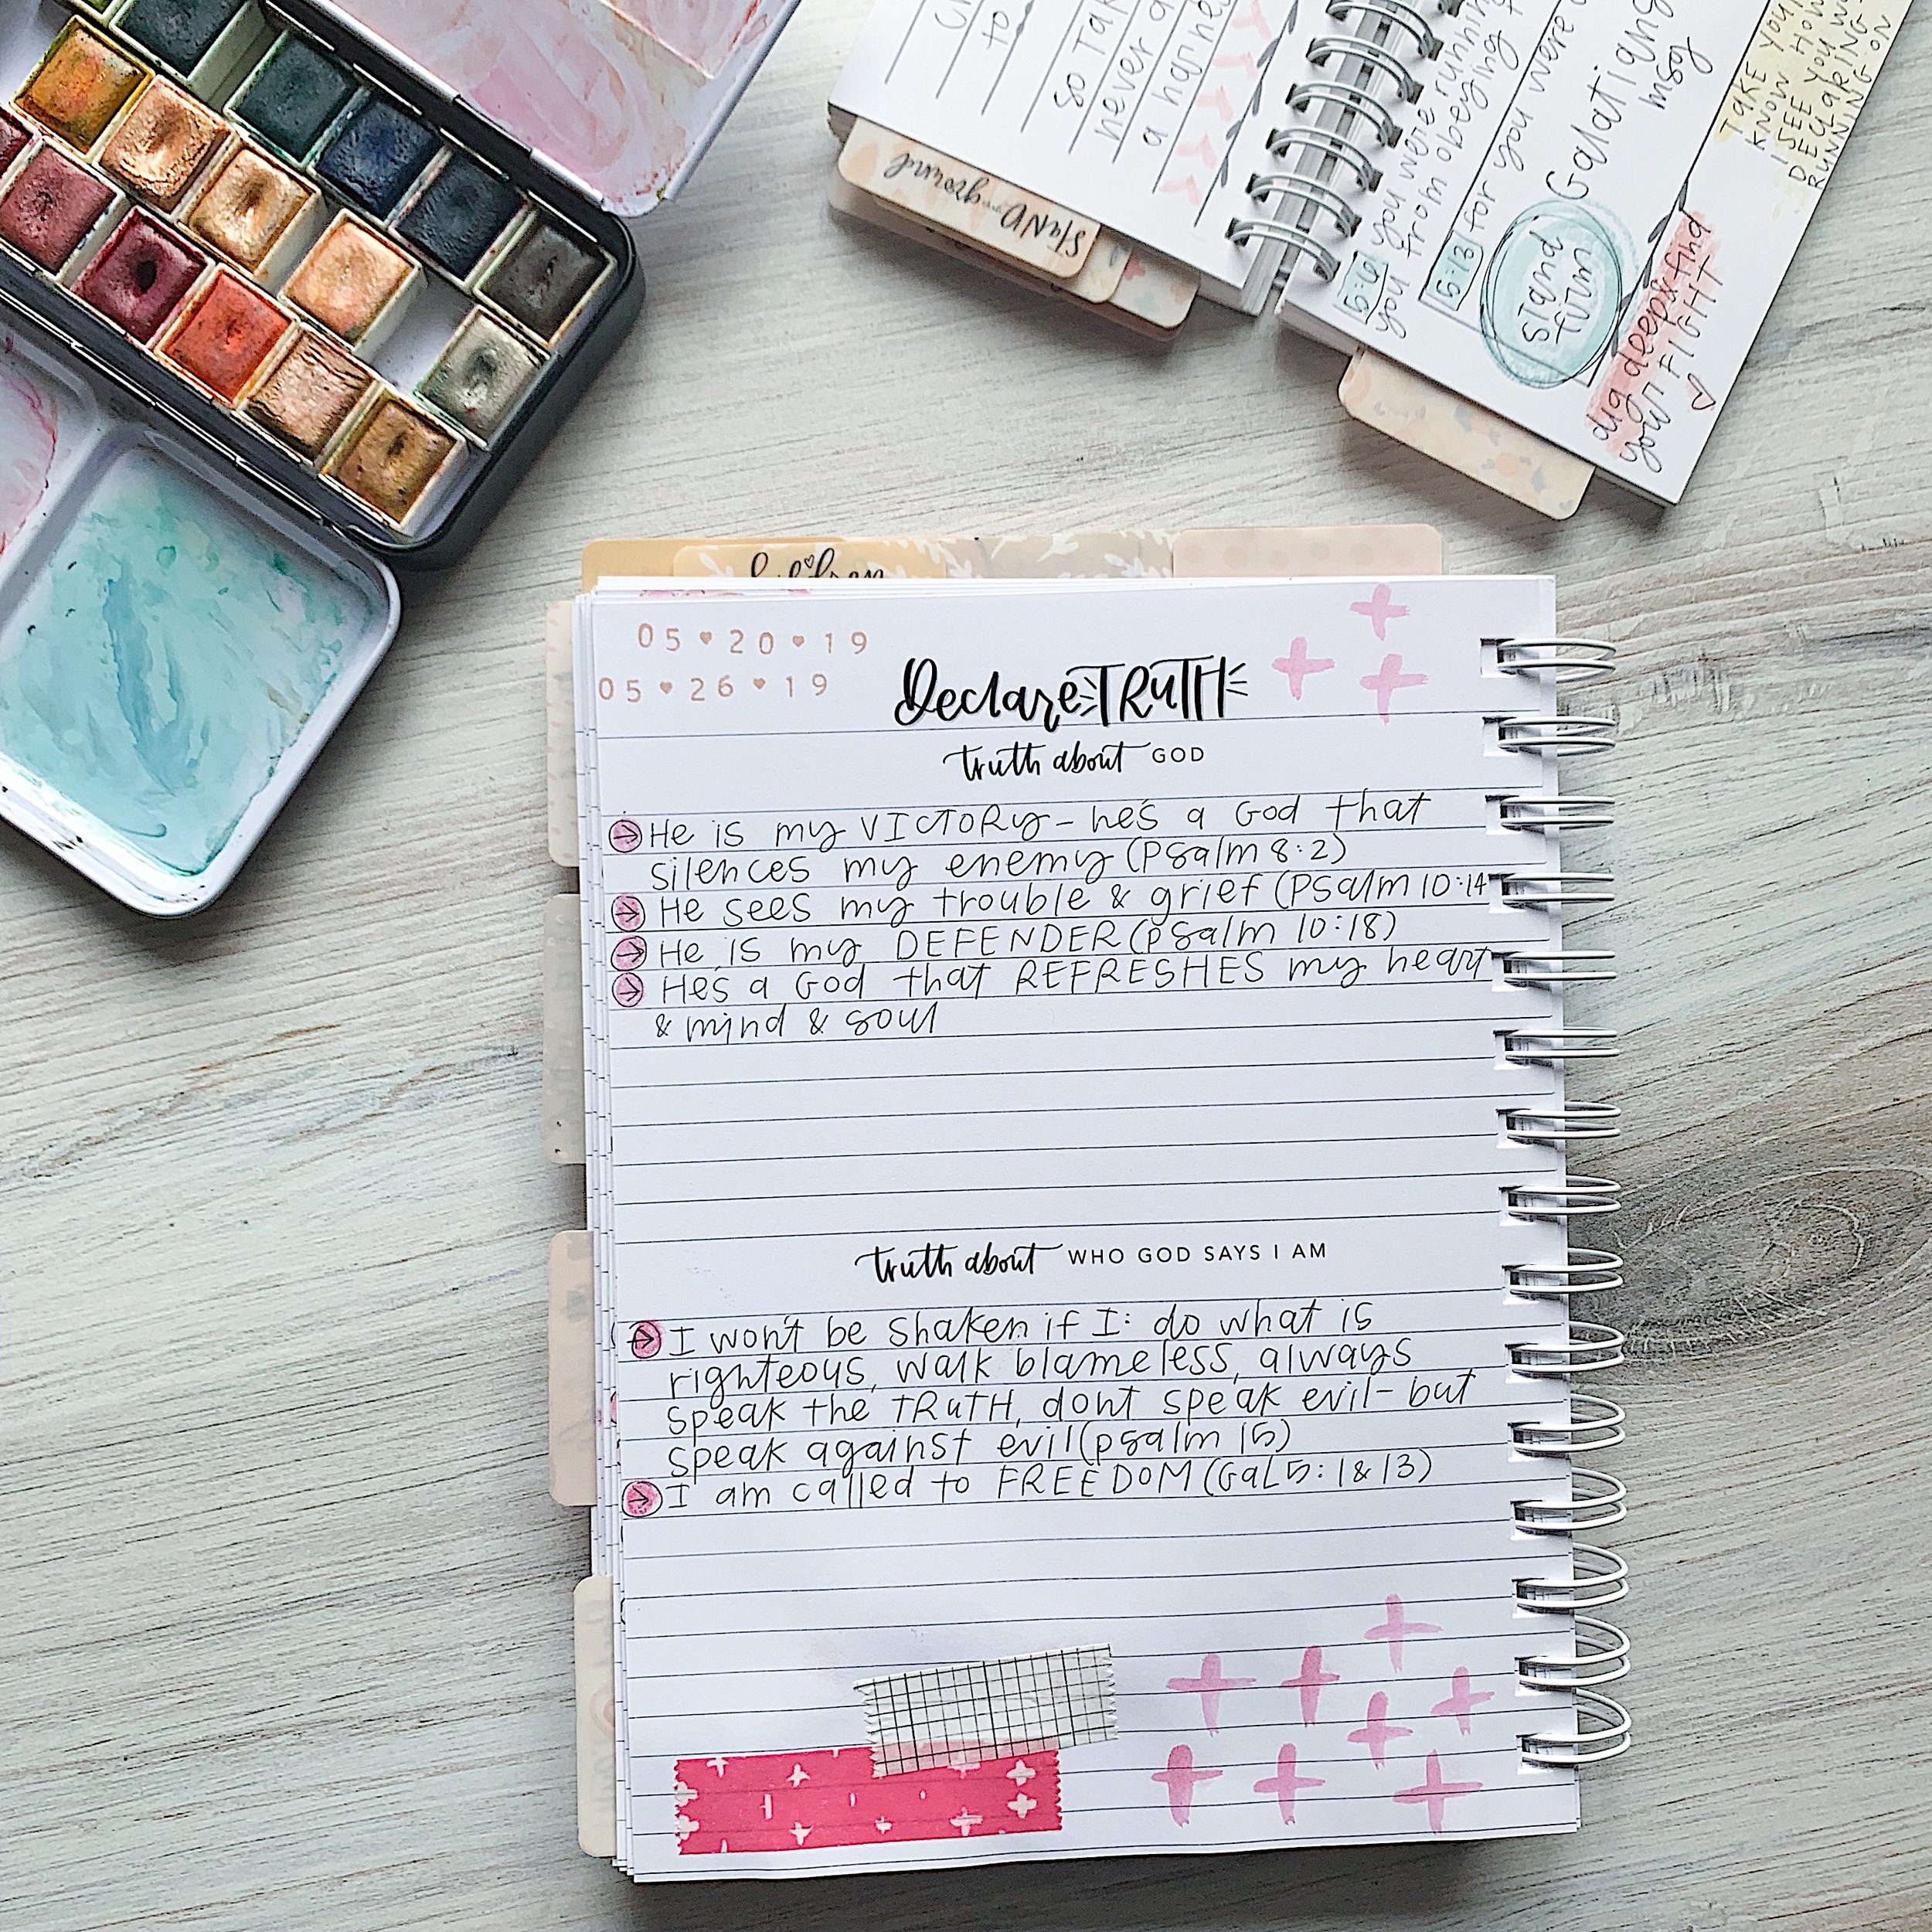 to
so tak
never a
a harne
STAND your ground
5:6 you were running
you from obeying
5:13 for you were
stand
firm
Galatians
msg
dig deep & find
your FIGHT
TAKE YOU
KNOW HOW
I SEE YOU
DECLARING
RUNNING ON
children
05 ♥ 20 ♥ 19
05 ♥ 26 ♥ 19
Declare TRUTH
truth about GOD
He is my VICTORY - he's a God that
silences my enemy (Psalm 8:2)
He sees my trouble & grief (Psalm 10:14
He is my DEFENDER (psalm 10:18)
He's a God that REFRESHES my heart
& mind & soul
truth about WHO GOD SAYS I AM
I won't be shaken if I: do what is
righteous, walk blameless, always
speak the TRUTH, dont speak evil - but
speak against evil (psalm 15)
I am called to FREEDOM (Gal 5: 1 & 13)